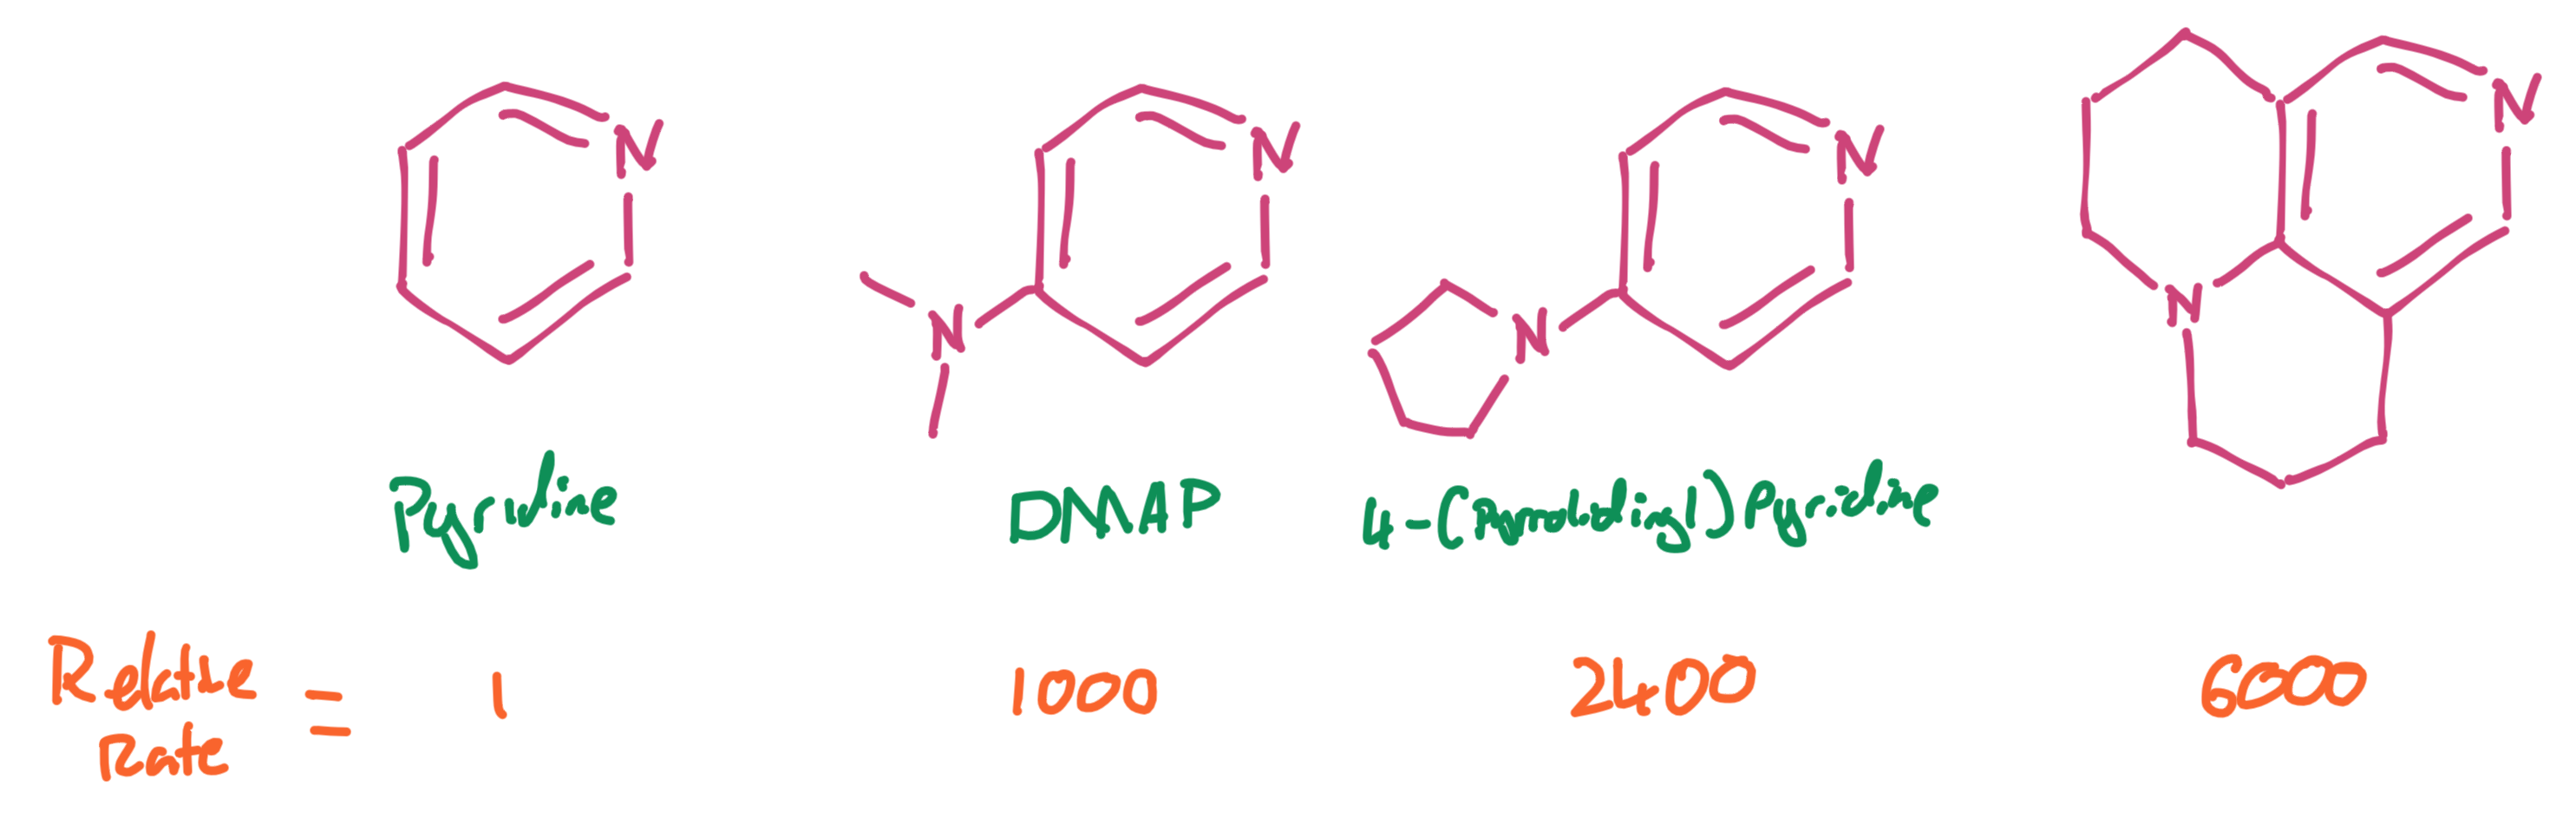 N N N N
N N N
Pyridine DMAP 4-(Pyrrolidinyl)Pyridine
Relative = 1 1000 2400 6000
Rate